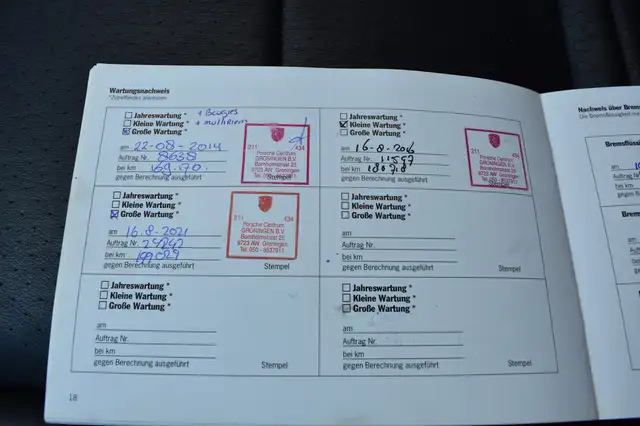 Wartungsnachweis
*Zutreffendes ankreuzen
Jahreswartung *
Kleine Wartung *
Große Wartung *
+ Bougies
am 22-08-2014
Auftrag Nr. 8658
bei km
gegen Berechnung ausgeführt
211 434
Porsche Centrum
GRONINGEN B.V.
Bornholmstraat 25
9723 AW Groningen
Stempel
Jahreswartung *
Kleine Wartung *
Große Wartung *
am 16-8-2016
Auftrag Nr. 11557
bei km
gegen Berechnung ausgeführt
211 434
Porsche Centrum
GRONINGEN B.V.
Bornholmstraat 25
9723 AW Groningen
Tel. 050 - 8537911
Stempel
Jahreswartung *
Kleine Wartung *
Große Wartung *
am 16.8-2021
Auftrag Nr.
bei km 199029
gegen Berechnung ausgeführt
211 434
Porsche Centrum
GRONINGEN B.V.
Bornholmstraat 25
9723 AW Groningen
Tel. 050 - 8537911
Stempel
Jahreswartung *
Kleine Wartung *
Große Wartung *
am
Auftrag Nr.
bei km
gegen Berechnung ausgeführt
Stempel
Jahreswartung *
Kleine Wartung *
Große Wartung *
am
Auftrag Nr.
bei km
gegen Berechnung ausgeführt
Stempel
Jahreswartung *
Kleine Wartung *
Große Wartung *
am
Auftrag Nr.
bei km
gegen Berechnung ausgeführt
Stempel
18
Nachweis über
Die Bremsflüssigkeit
am